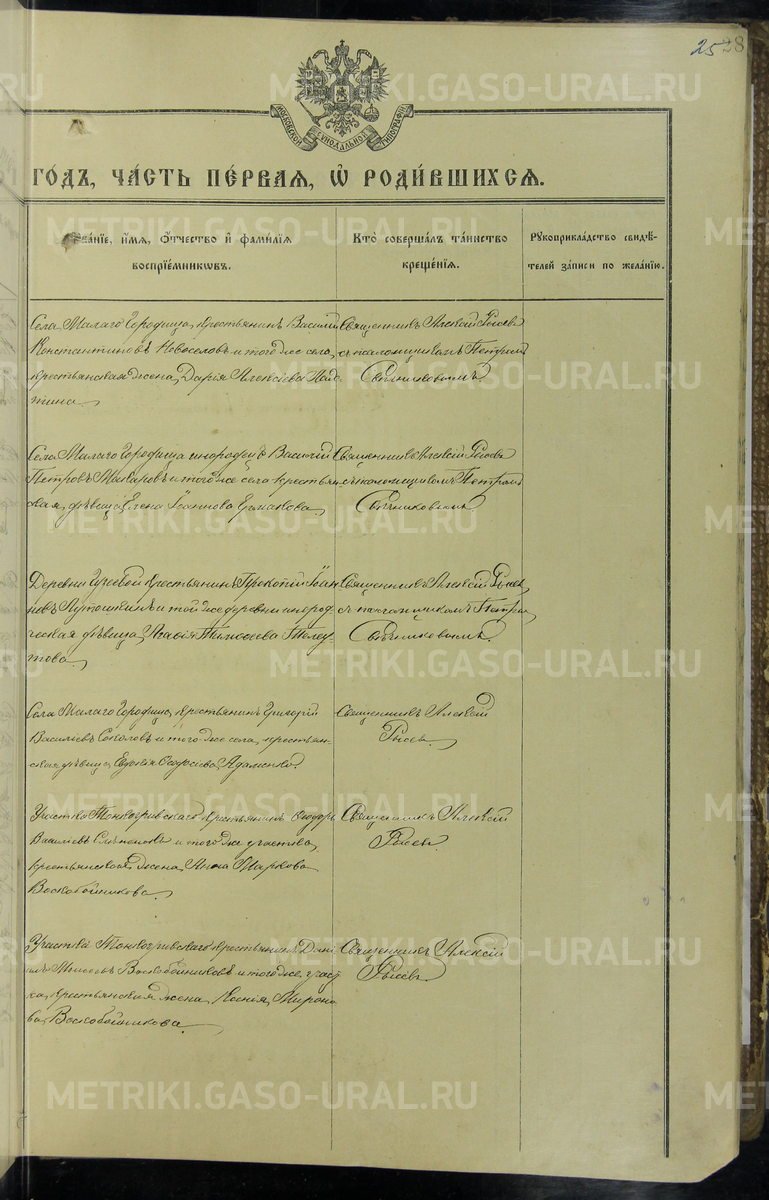 25 28
МОСКОВСКОЙ СѴНОДАЛЬНОЙ ТИПОГРАФІИ
ГО́ДЪ, ЧА́СТЬ ПЕ́РВАЯ, Ѡ҆ РОДИ́ВШИХСѦ.
вáнїе, и҆́мѧ, ѻ҆́тчество и҆ фами́лїѧ
воспрїе́мникѡвъ.
Кто̀ соверша́лъ та́инство
креще́нїѧ.
Рꙋкоприкла́дство свидѣ́-
телей за́писи по жела́нїю.
Села Малаго Городища крестьянинъ Василій
Константиновъ Новоселовъ и того же села,
крестьянская жена, Дарія Алексіева
тина.
Священникъ Алексій Рысевъ
съ псаломщикомъ Петромъ
Свѣчниковымъ
Села Малаго Городища инородецъ Василій
Петровъ Макаровъ и того же села крестьян
ская дѣвица Елена Іоаннова Ермакова.
Священникъ Алексій Рысевъ
съ псаломщикомъ Петром
Свѣчниковымъ
Деревни крестьянинъ Прокопій Іоан
новъ Лутошкинъ и той же деревни инород
ческая дѣвица, Агафія Тимофеева
това.
Священникъ Алексій Рысев
съ псаломщикомъ Петро
Свѣчниковымъ
Села Малаго Городища, крестьянинъ Григорій
Васильевъ Соколовъ и того же села, крестьян-
ская дѣвица Евдокія Адаменко.
Священникъ Алексій
Рысевъ.
Участка Тонкогривскаго крестьянинъ Ѳеодоръ
Васильевъ и того же участка,
крестьянская жена, Анна Маркова
Воскобойникова.
Священникъ Алексій
Рысевъ.
Участка Тонкогривскаго крестьянинъ Дани
илъ Моисеевъ Воскобойниковъ и того же участ
ка, крестьянская жена, Ксенія Миронo
ва Воскобойникова.
Священникъ Алексій
Рысевъ.
METRIKI.GASO-URAL.RU